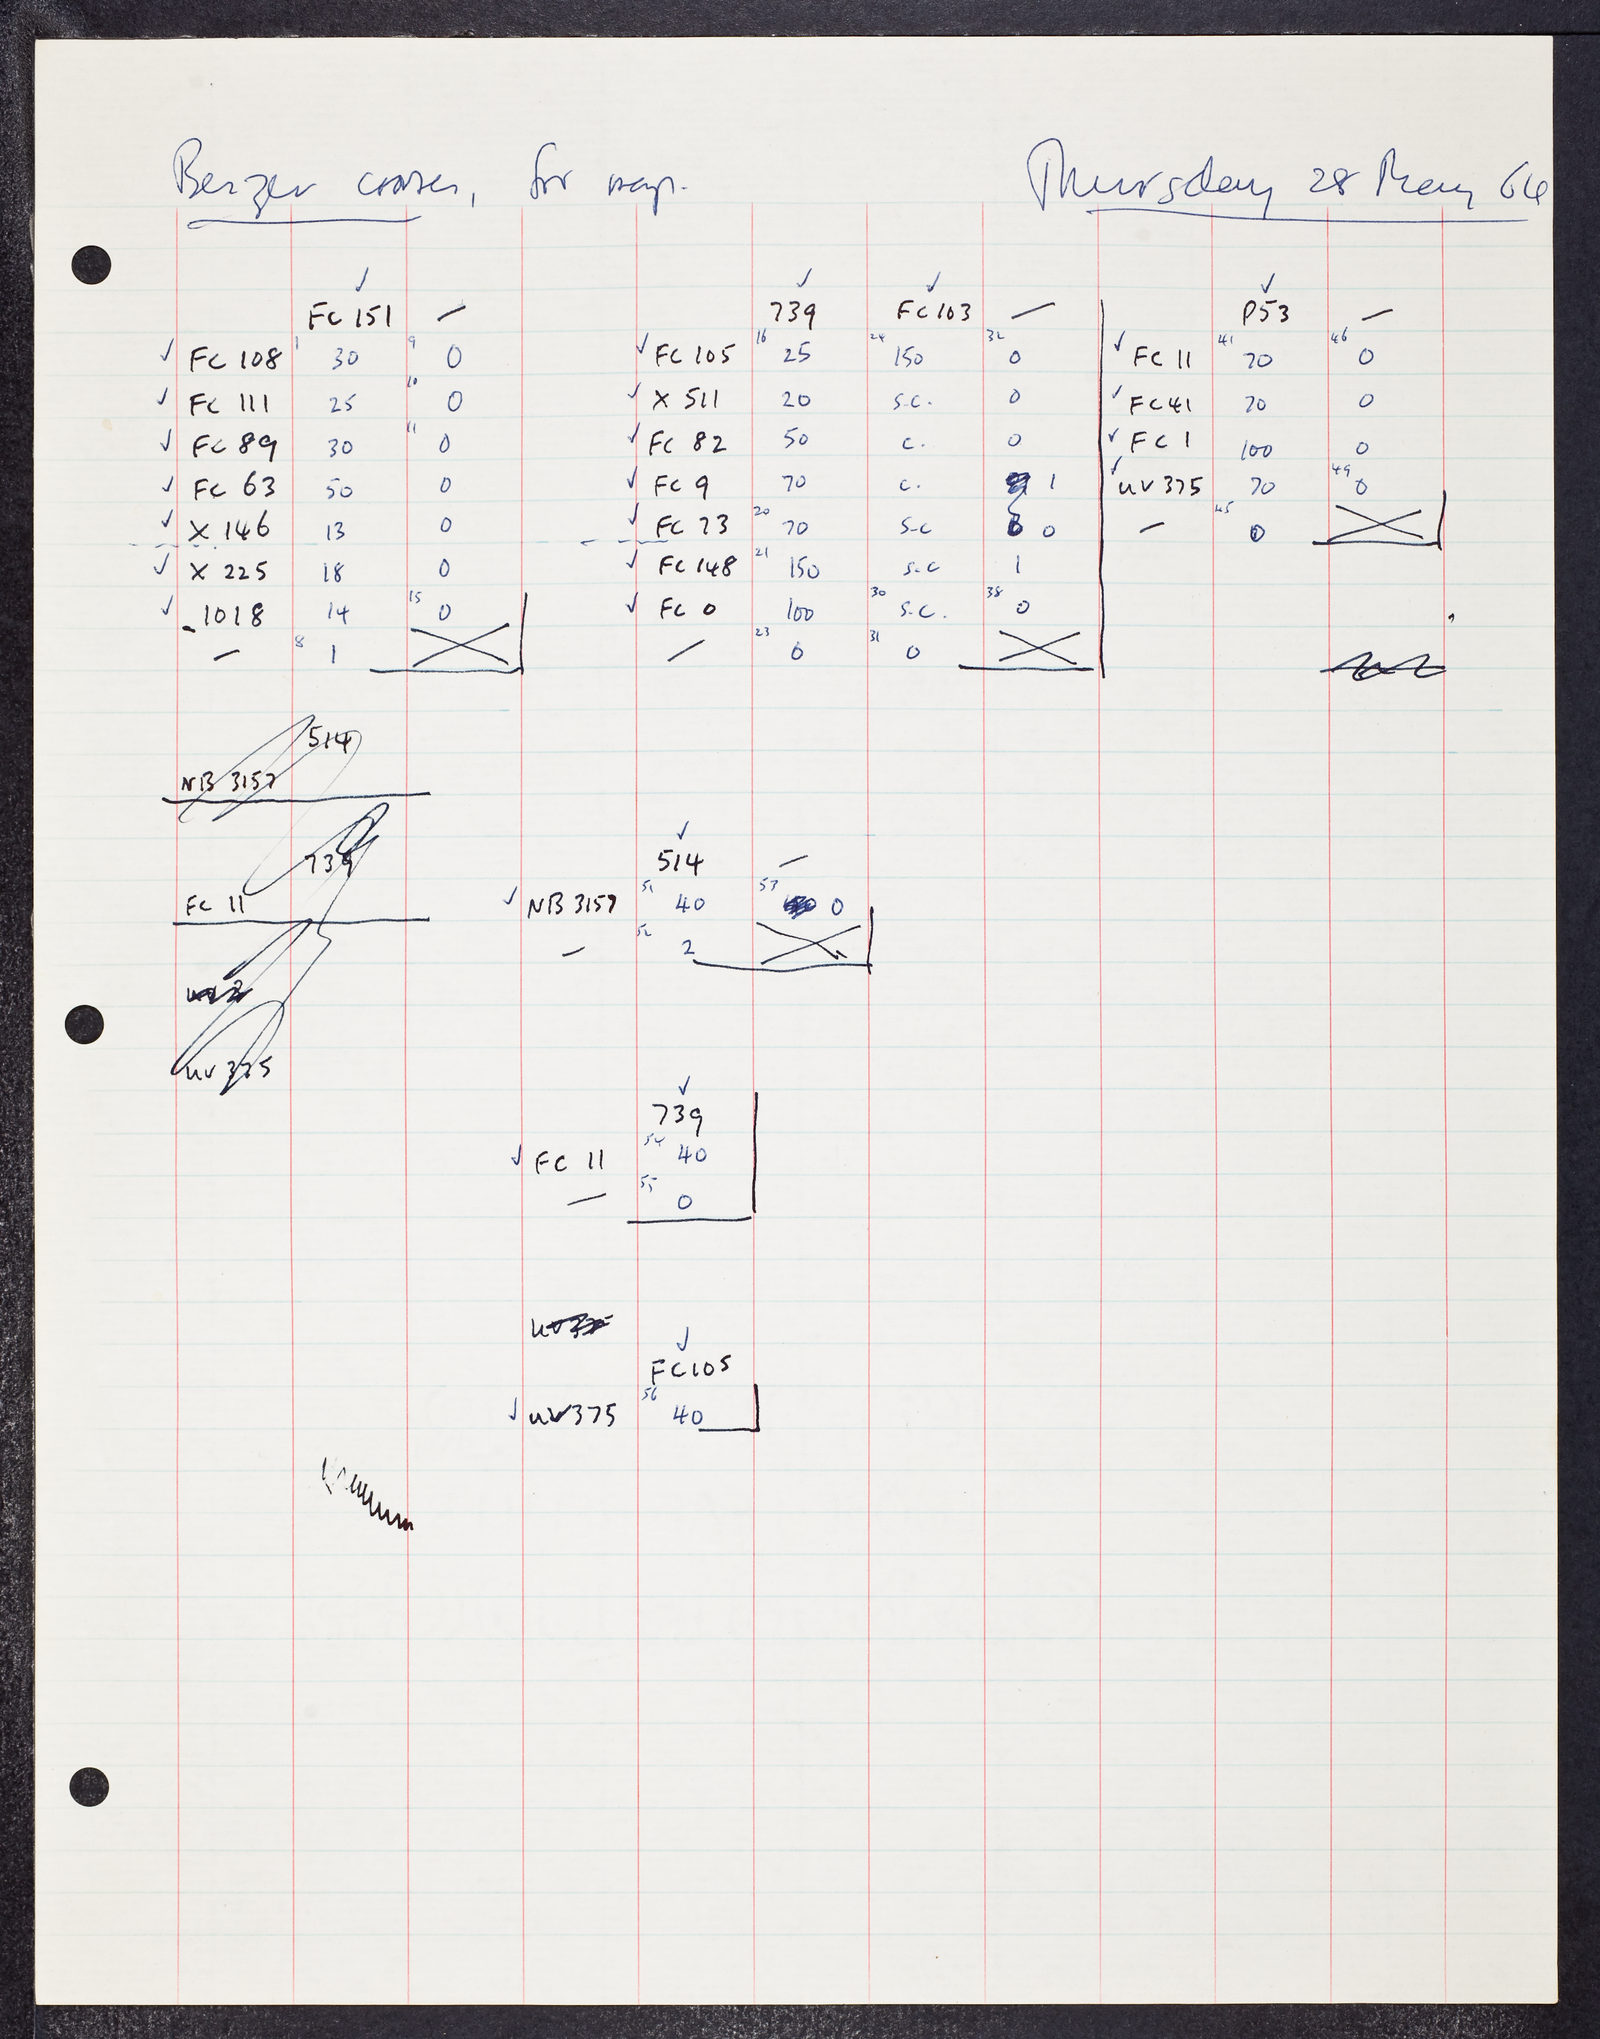 Benzer crosses, for map. Thursday 28 May 64
FC 151 — 739 FC 103 — P53 —
FC 108 1 30 9 0 FC 105 16 25 24 150 32 0 FC 11 41 70 46 0
FC 111 25 10 0 X 511 20 s.c. 0 FC41 70 0
FC 89 30 11 0 FC 82 50 c. 0 FC 1 100 0
FC 63 50 0 FC 9 70 c. 1 UV 375 70 49 0
X 146 13 0 FC 73 20 70 s-c 0 — 45 0
X 225 18 0 FC 148 21 150 s.c 1
1018 14 15 0 FC 0 100 30 s.c. 38 0
— 8 1 — 23 0 31 0
514
NB 3157
739
FC 11
UV 375
514 —
NB 3157 51 40 53 0
— 52 2
739
FC 11 54 40
— 55 0
FC105
UV375 56 40